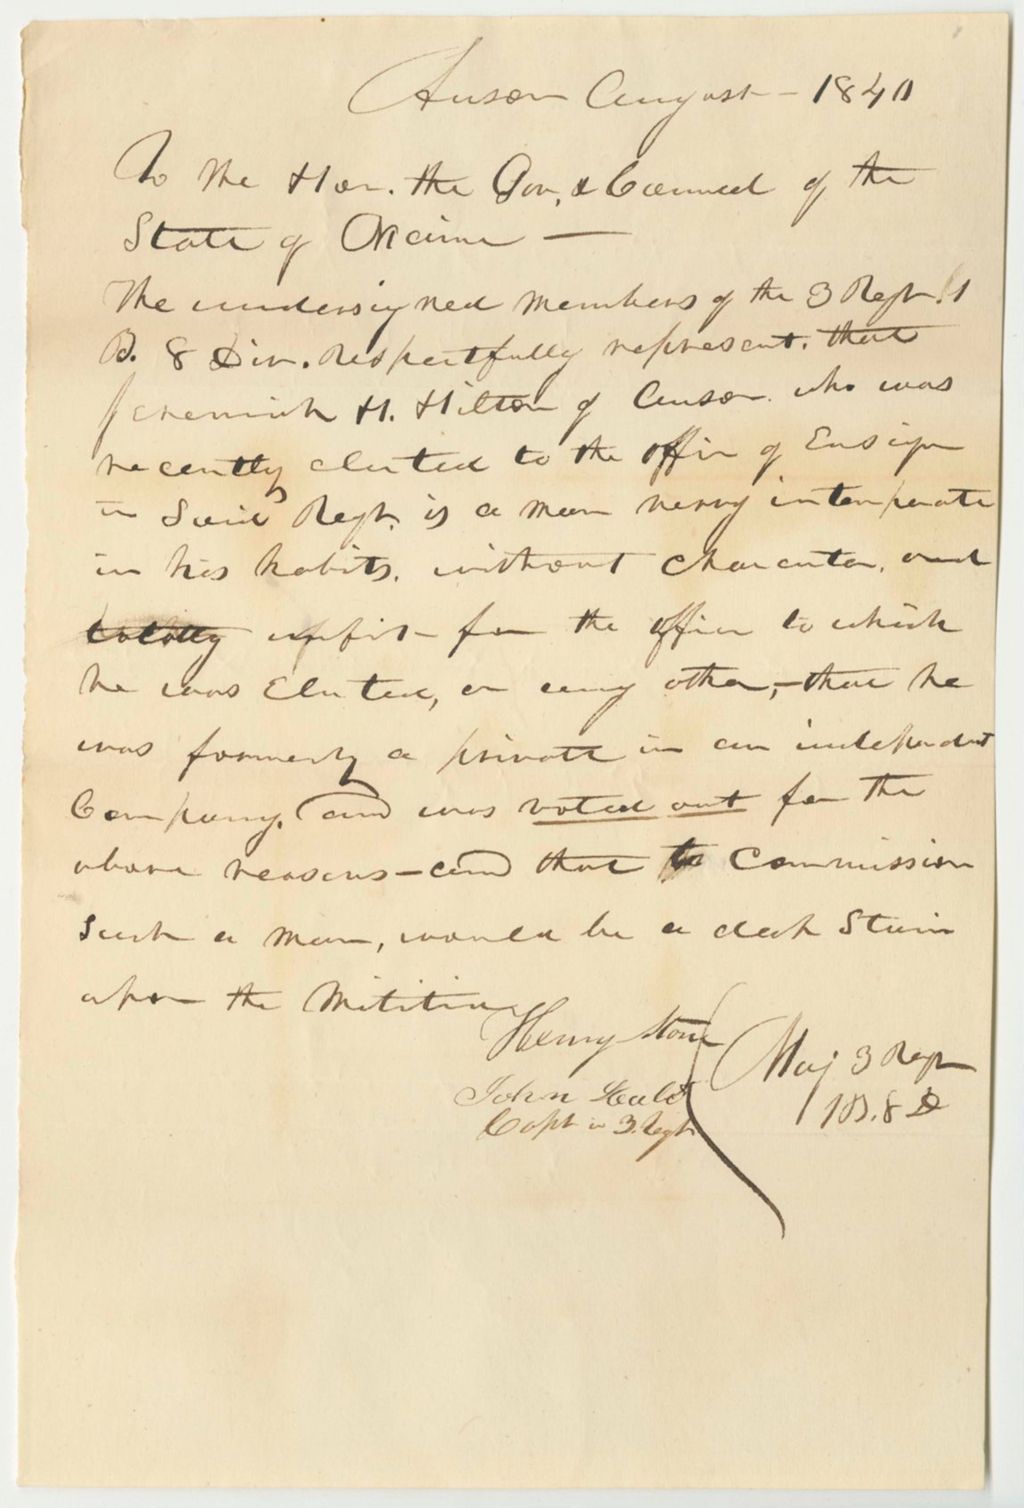 Anson August - 1840
To the Hon. the Gov, & Council of the
State of Maine —
The undersigned members of the 3 Regt. 1
B. 8 Div. Respectfully represent. that
Jeremiah H. Hilton of Anson. who was
recently elected to the office of Ensign
in Said Regt. is a man very intemperate
in his habits. without character, and
totally unfit for the office to which
he was Elected, or any other, - that he
was formerly a private in an independent
Company. and was voted out for the
above reasons - and that to Commission
Such a man, would be a dark Stain
upon the Militia
Henry Stone
Maj 3 Regt
1 B. 8 D
John Heald
Capt in 3. Regt